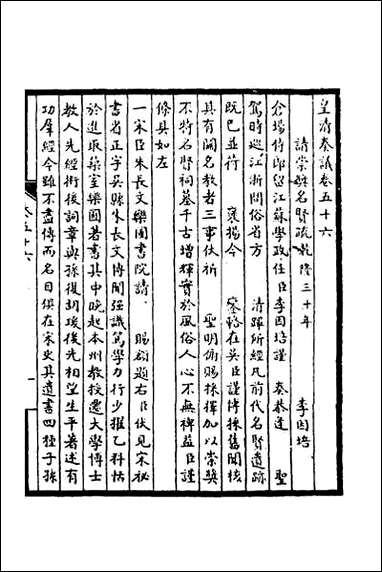 皇清奏議卷五十六
請崇祀名賢疏乾隆三十年　李因培
倉場侍郎留江蘇學政任臣李因培謹　奏恭逢　聖
駕時巡江浙問俗省方　清蹕所經凡前代名賢遺跡
既已並行　褒揚今　鑾輅在吳臣謹博採舊聞核
具有關名教者三事伏祈　聖明俯賜採擇加以崇獎
不特名賢祠墓千古增輝實於風俗人心不無裨益臣謹
條具如左
一宋臣朱長文樂圃書院請　賜額題右臣伏見宋祕
書省正字吳縣朱長文博聞强識篤學力行少擢乙科怙
於進取築室樂圃著書其中晚起本州教授遷大學博士
教人先經術後詞章與孫復胡瑗後先相望生平著述有
功羣經今雖不盡傳而名目俱在宋史其遺書四種子孫
卷五十六
一